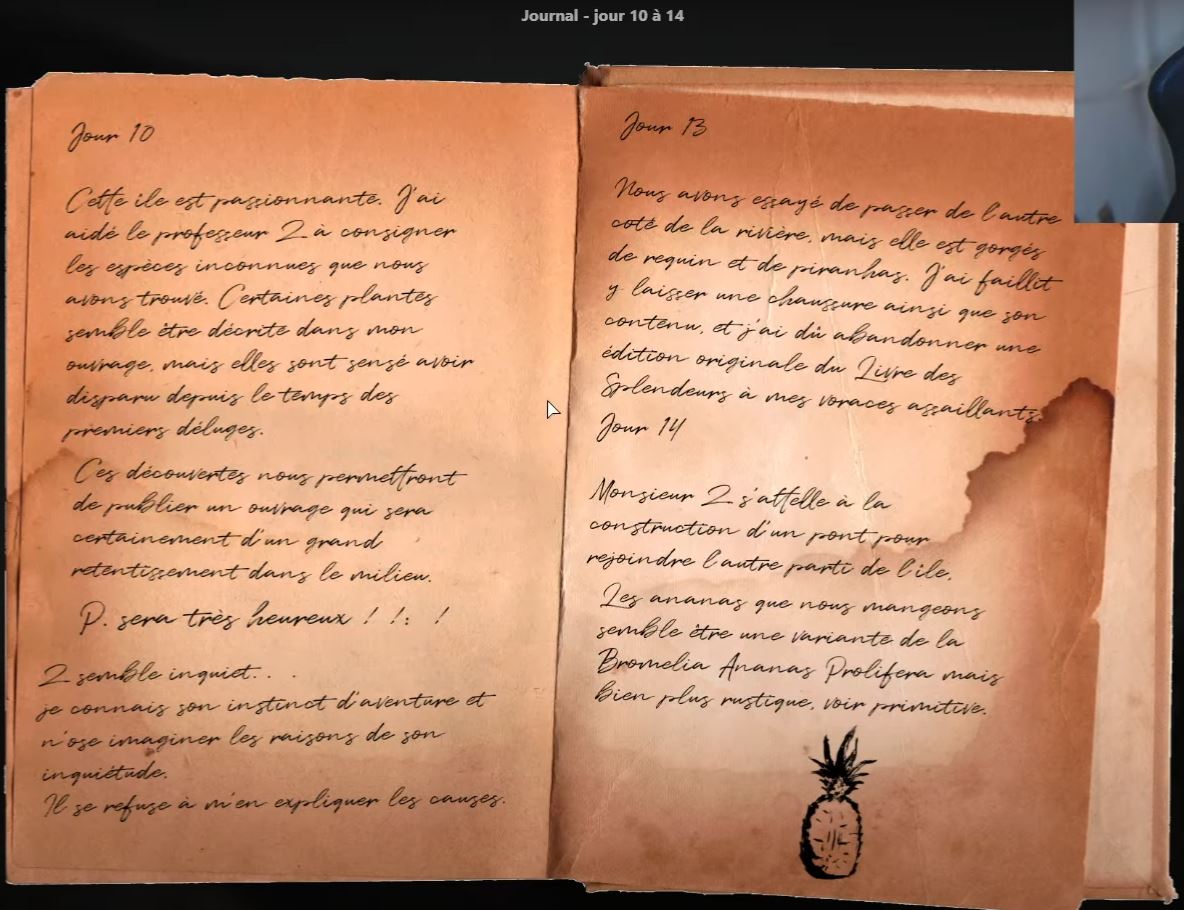 Journal - jour 10 à 14
Jour 10
Cette ile est passionnante. J'ai
aidé le professeur Z à consigner
les espèces inconnues que nous
avons trouvé. Certaines plantes
semble être décrite dans mon
ouvrage, mais elles sont sensé avoir
disparu depuis le temps des
premiers déluges.
Ces découvertes nous permettront
de publier un ouvrage qui sera
certainement d'un grand
retentissement dans le milieu.
P. sera très heureux ! !: !
Z semble inquiet. . .
je connais son instinct d'aventure et
n'ose imaginer les raisons de son
inquiétude.
Il se refuse à m'en expliquer les causes.
Jour 13
Nous avons essayé de passer de l'autre
coté de la rivière, mais elle est gorgés
de requin et de piranhas. J'ai faillit
y laisser une chaussure ainsi que son
contenu, et j'ai dû abandonner une
édition originale du Livre des
Splendeurs à mes voraces assaillants.
Jour 14
Monsieur Z s'attelle à la
construction d'un pont pour
rejoindre l'autre parti de l'ile.
Les ananas que nous mangeons
semble être une variante de la
Bromelia Ananas Prolifera mais
bien plus rustique, voir primitive.